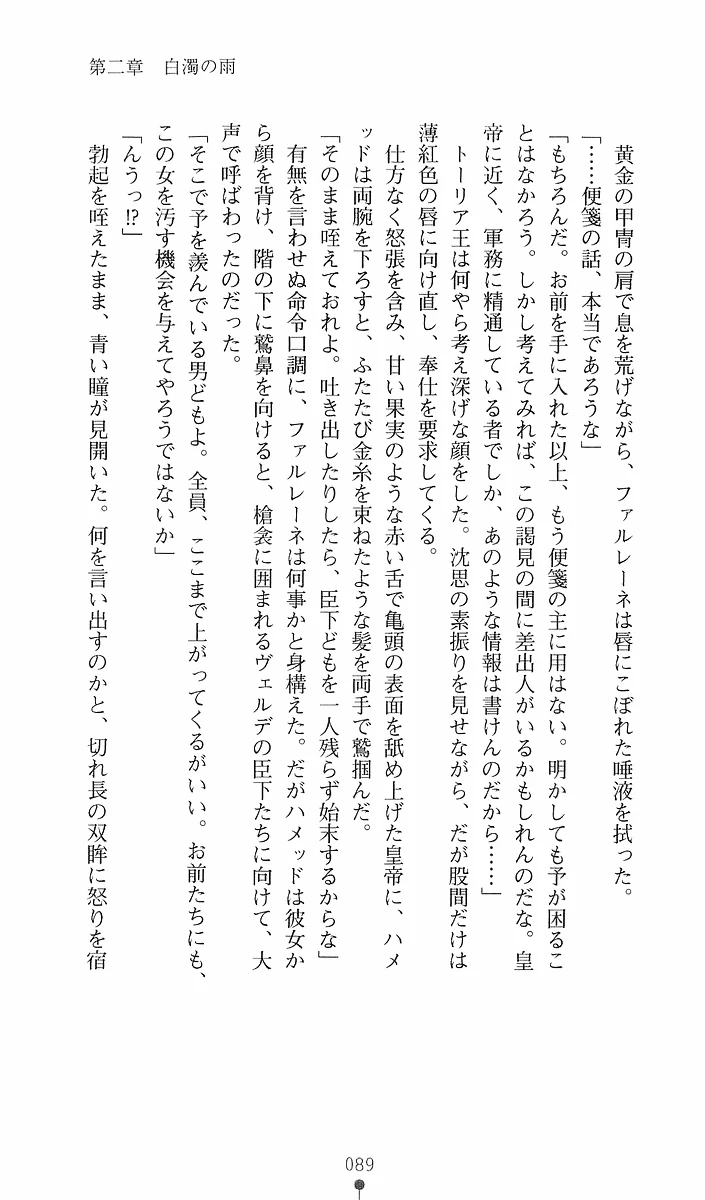 第二章　白濁の雨
　黄金の甲冑の肩で息を荒げながら、ファルレーネは唇にこぼれた唾液を拭った。
「……便箋の話、本当であろうな」
「もちろんだ。お前を手に入れた以上、もう便箋の主に用はない。明かしても予が困るこ
とはなかろう。しかし考えてみれば、この謁見の間に差出人がいるかもしれんのだな。皇
帝に近く、軍務に精通している者でしか、あのような情報は書けんのだから……」
　トーリア王は何やら考え深げな顔をした。沈思の素振りを見せながら、だが股間だけは
薄紅色の唇に向け直し、奉仕を要求してくる。
　仕方なく怒張を含み、甘い果実のような赤い舌で亀頭の表面を舐め上げた皇帝に、ハメ
ッドは両腕を下ろすと、ふたたび金糸を束ねたような髪を両手で鷲掴んだ。
「そのまま咥えておれよ。吐き出したりしたら、臣下どもを一人残らず始末するからな」
　有無を言わせぬ命令口調に、ファルレーネは何事かと身構えた。だがハメッドは彼女か
ら顔を背け、階の下に鷲鼻を向けると、槍衾に囲まれるヴェルデの臣下たちに向けて、大
声で呼ばわったのだった。
「そこで予を羨んでいる男どもよ。全員、ここまで上がってくるがいい。お前たちにも、
この女を汚す機会を与えてやろうではないか」
「んうっ!?」
　勃起を咥えたまま、青い瞳が見開いた。何を言い出すのかと、切れ長の双眸に怒りを宿
089